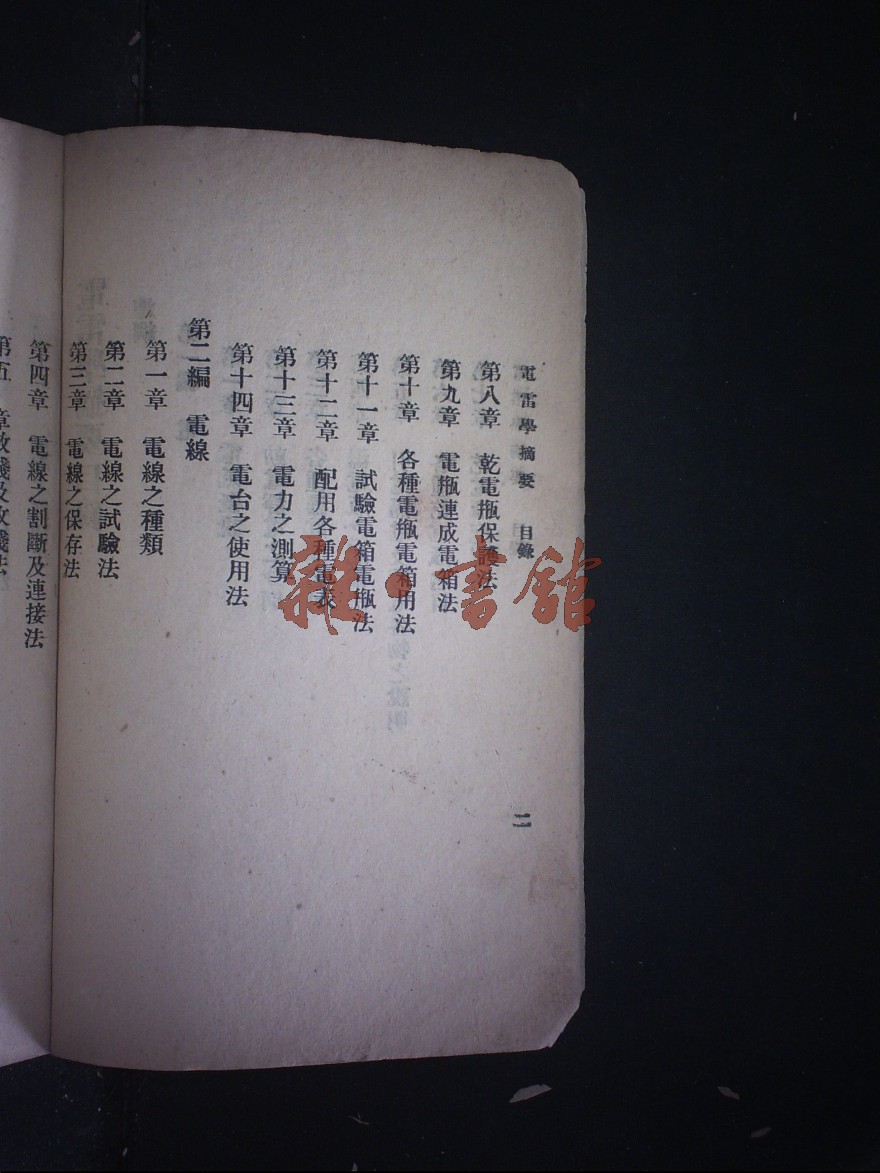 電雷學摘要 目錄
第八章 乾電瓶保護法
第九章 電瓶連成電箱法
第十章 各種電瓶電箱用法
第十一章 試驗電箱電瓶法
第十二章 配用各種電表
第十三章 電力之測算
第十四章 電台之使用法
第二編 電線
第一章 電線之種類
第二章 電線之試驗法
第三章 電線之保存法
第四章 電線之割斷及連接法
第五章
二
雜·書館